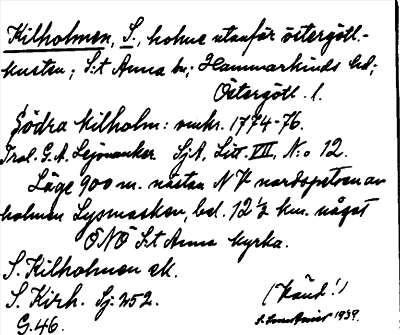 Kilholmen, S., holme utanför östergötl.-
kusten; S:t Anna sn; Hammarkinds hd;
Östergötl. l.
Södra Kilholm: omkr. 1774-76.
Tral. G.A. Lejonanker SjA, Litt. VII, N:o 12.
Läge 900 m. nästan NV nordspetsen av
holmen Lysmasken, bel. 12 ½ km. något
ÖNÖ S:t Anna kyrka.
S. Kilholmen ek.
S. Kirh. Sj: 252.
G.46.
(Känd!)
1939.